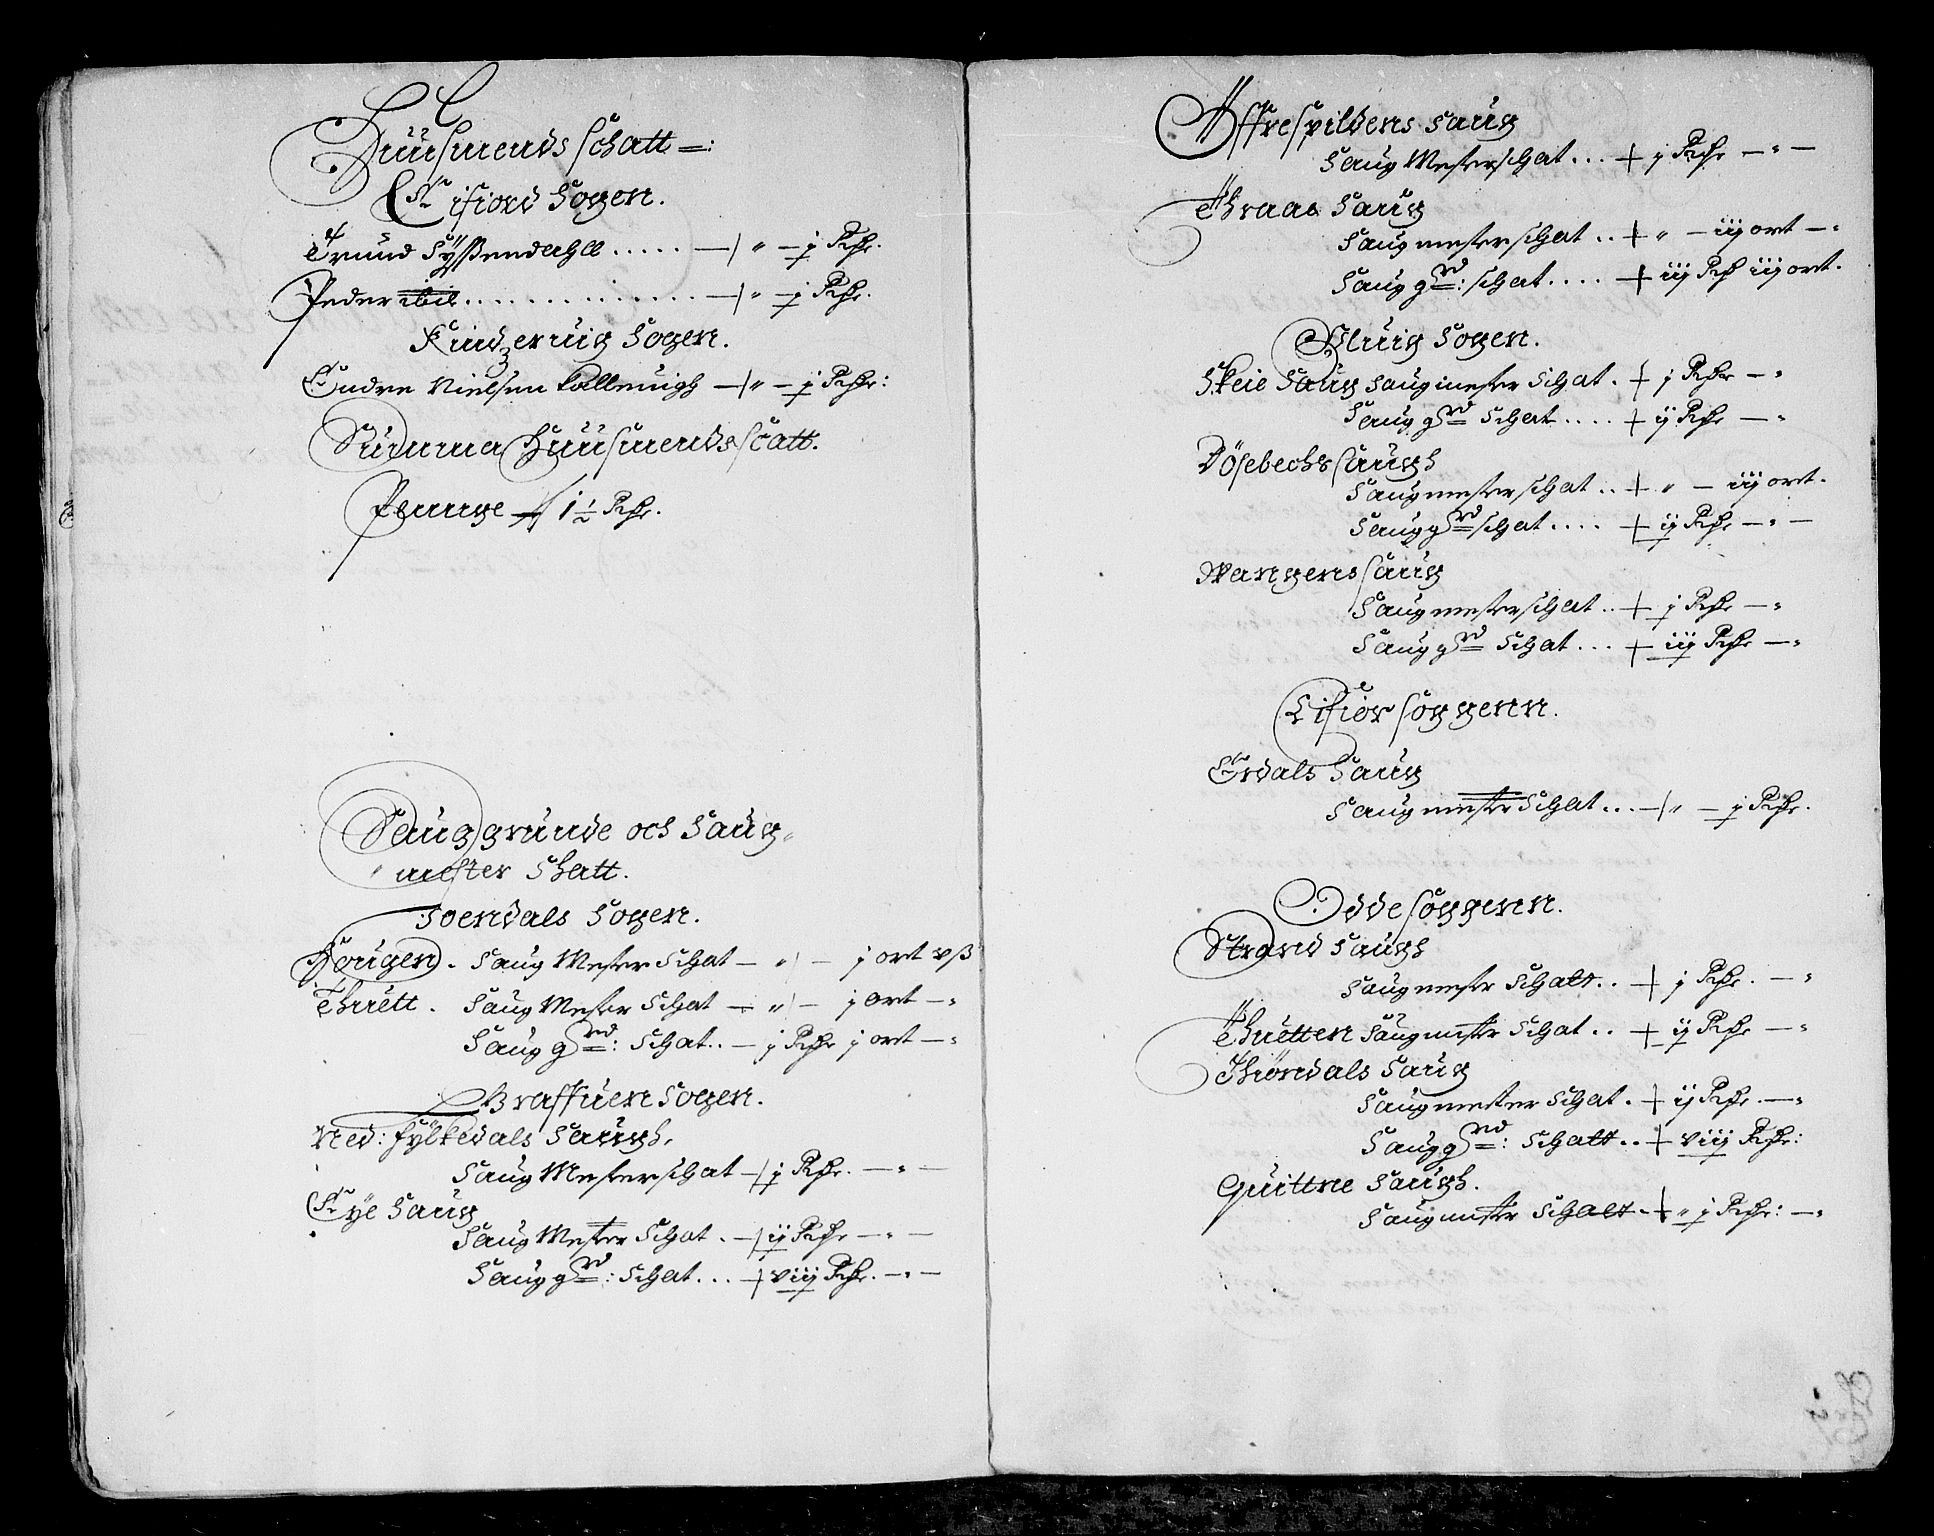 Huusmends schatt =:
Eifiord Sogen.
Trund Syssendahll ..... — " — j Rdr.
Peder ibid .............. — " — j Rdr.
Kindzeruig Sogen.
Endre Nielsen Tolleuigh — " — j Rdr:
Summa Huusmendsscatt.
Penge — 1½ Rdr.
Sauggrunde och Saug-
mester Skatt.
Soendals Sogen.
Hougen. Saug Mester Schat — " — j ort vß
Thuett. Saug Mester Schat — " — j ort — "
Saug grd: Schat.. — j Rdr j ort — "
Graffuen Sogen.
Ned: fylkedals Saugh.
Saug Mester schat — j Rdr. — " —
Eye Saug
Saug Mester Schat . — ij Rdr — " —
Saug grd: Schat ... — viij Rdr. — " —
Affrespildens saug
Saug Mester schat ... + j Rdr — " —
Thraas Saug
Saugmester schat .. + " — iij ort — "
Saug grd: schat .... + iij Rdr iij ort.
Vluig Sogen.
Skeie Saug saugmester Schat . + j Rdr — "
Saug grd Schat .... + ij Rdr — "
Dösebechs saugh
Saugmester schat .. + " — iij ort.
Saug grd schat .... + ij Rdr — " —
Wangens saug
Saugmester schat .. + j Rdr — "
Saug grd Schat ... + iij Rdr — "
Eifior soggenn.
Erdals Saug
Saugmester Schat ... — " — j Rdr.
Odde soggenn.
Strand Saugh
Saugmester Schatt .. + j Rdr. — "
Thuetten Saugmester Schat .. + ij Rdr — "
Thiøndals Saug
Saugmester Schat . + ij Rdr. — "
Saug grd: Schatt .. + viij Rdr:
Quittne Saugh.
Saugmester Schatt . + " j Rdr: — "